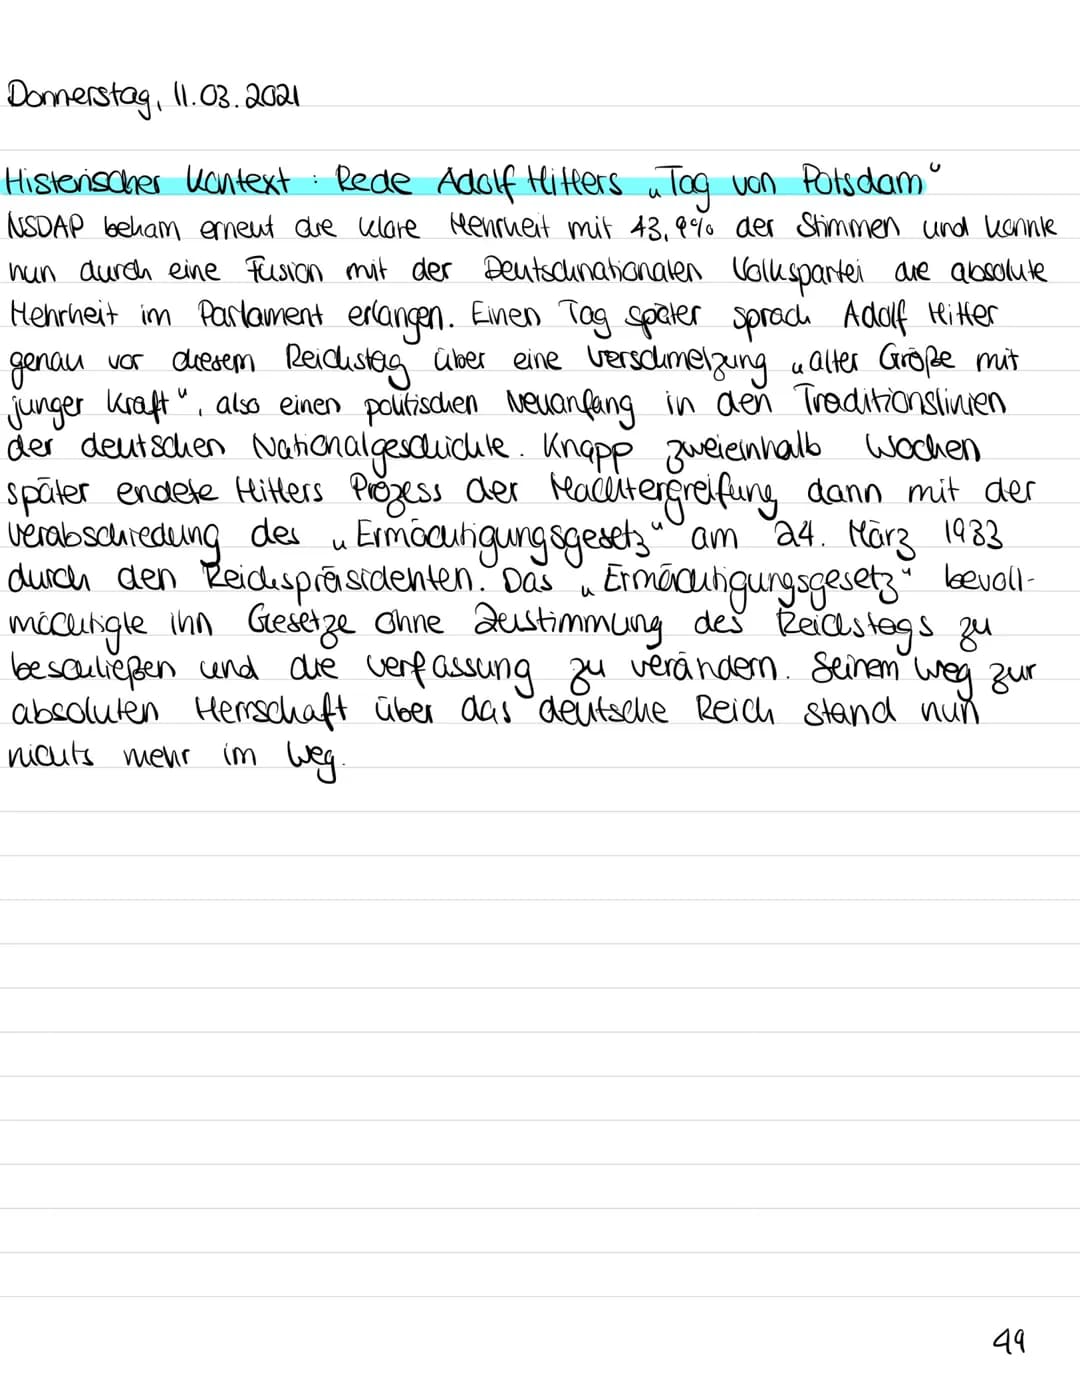 Donnerstag, 11.03.2021
Historischer Kontext : Rede Adolf Hitlers „Tag von Potsdam“
NSDAP bekam erneut die klare Mehrheit mit 43,9% der Stimmen und konnte
nun durch eine Fusion mit der Deutschnationalen Volkspartei die absolute
Mehrheit im Parlament erlangen. Einen Tag später sprach Adolf Hitler
genau vor diesem Reichstag über eine Verschmelzung „alter Größe mit
junger Kraft“, also einen politischen Neuanfang in den Traditionslinien
der deutschen Nationalgeschichte. Knapp zweieinhalb Wochen
später endete Hitlers Prozess der Machtergreifung dann mit der
Verabschiedung des „Ermächtigungsgesetz“ am 24. März 1933
durch den Reichspräsidenten. Das „Ermächtigungsgesetz“ bevoll-
mächtigte ihn Gesetze ohne Zustimmung des Reichstags zu
beschließen und die Verfassung zu verändern. Seinem Weg zur
absoluten Herrschaft über das deutsche Reich stand nun
nichts mehr im Weg.
49